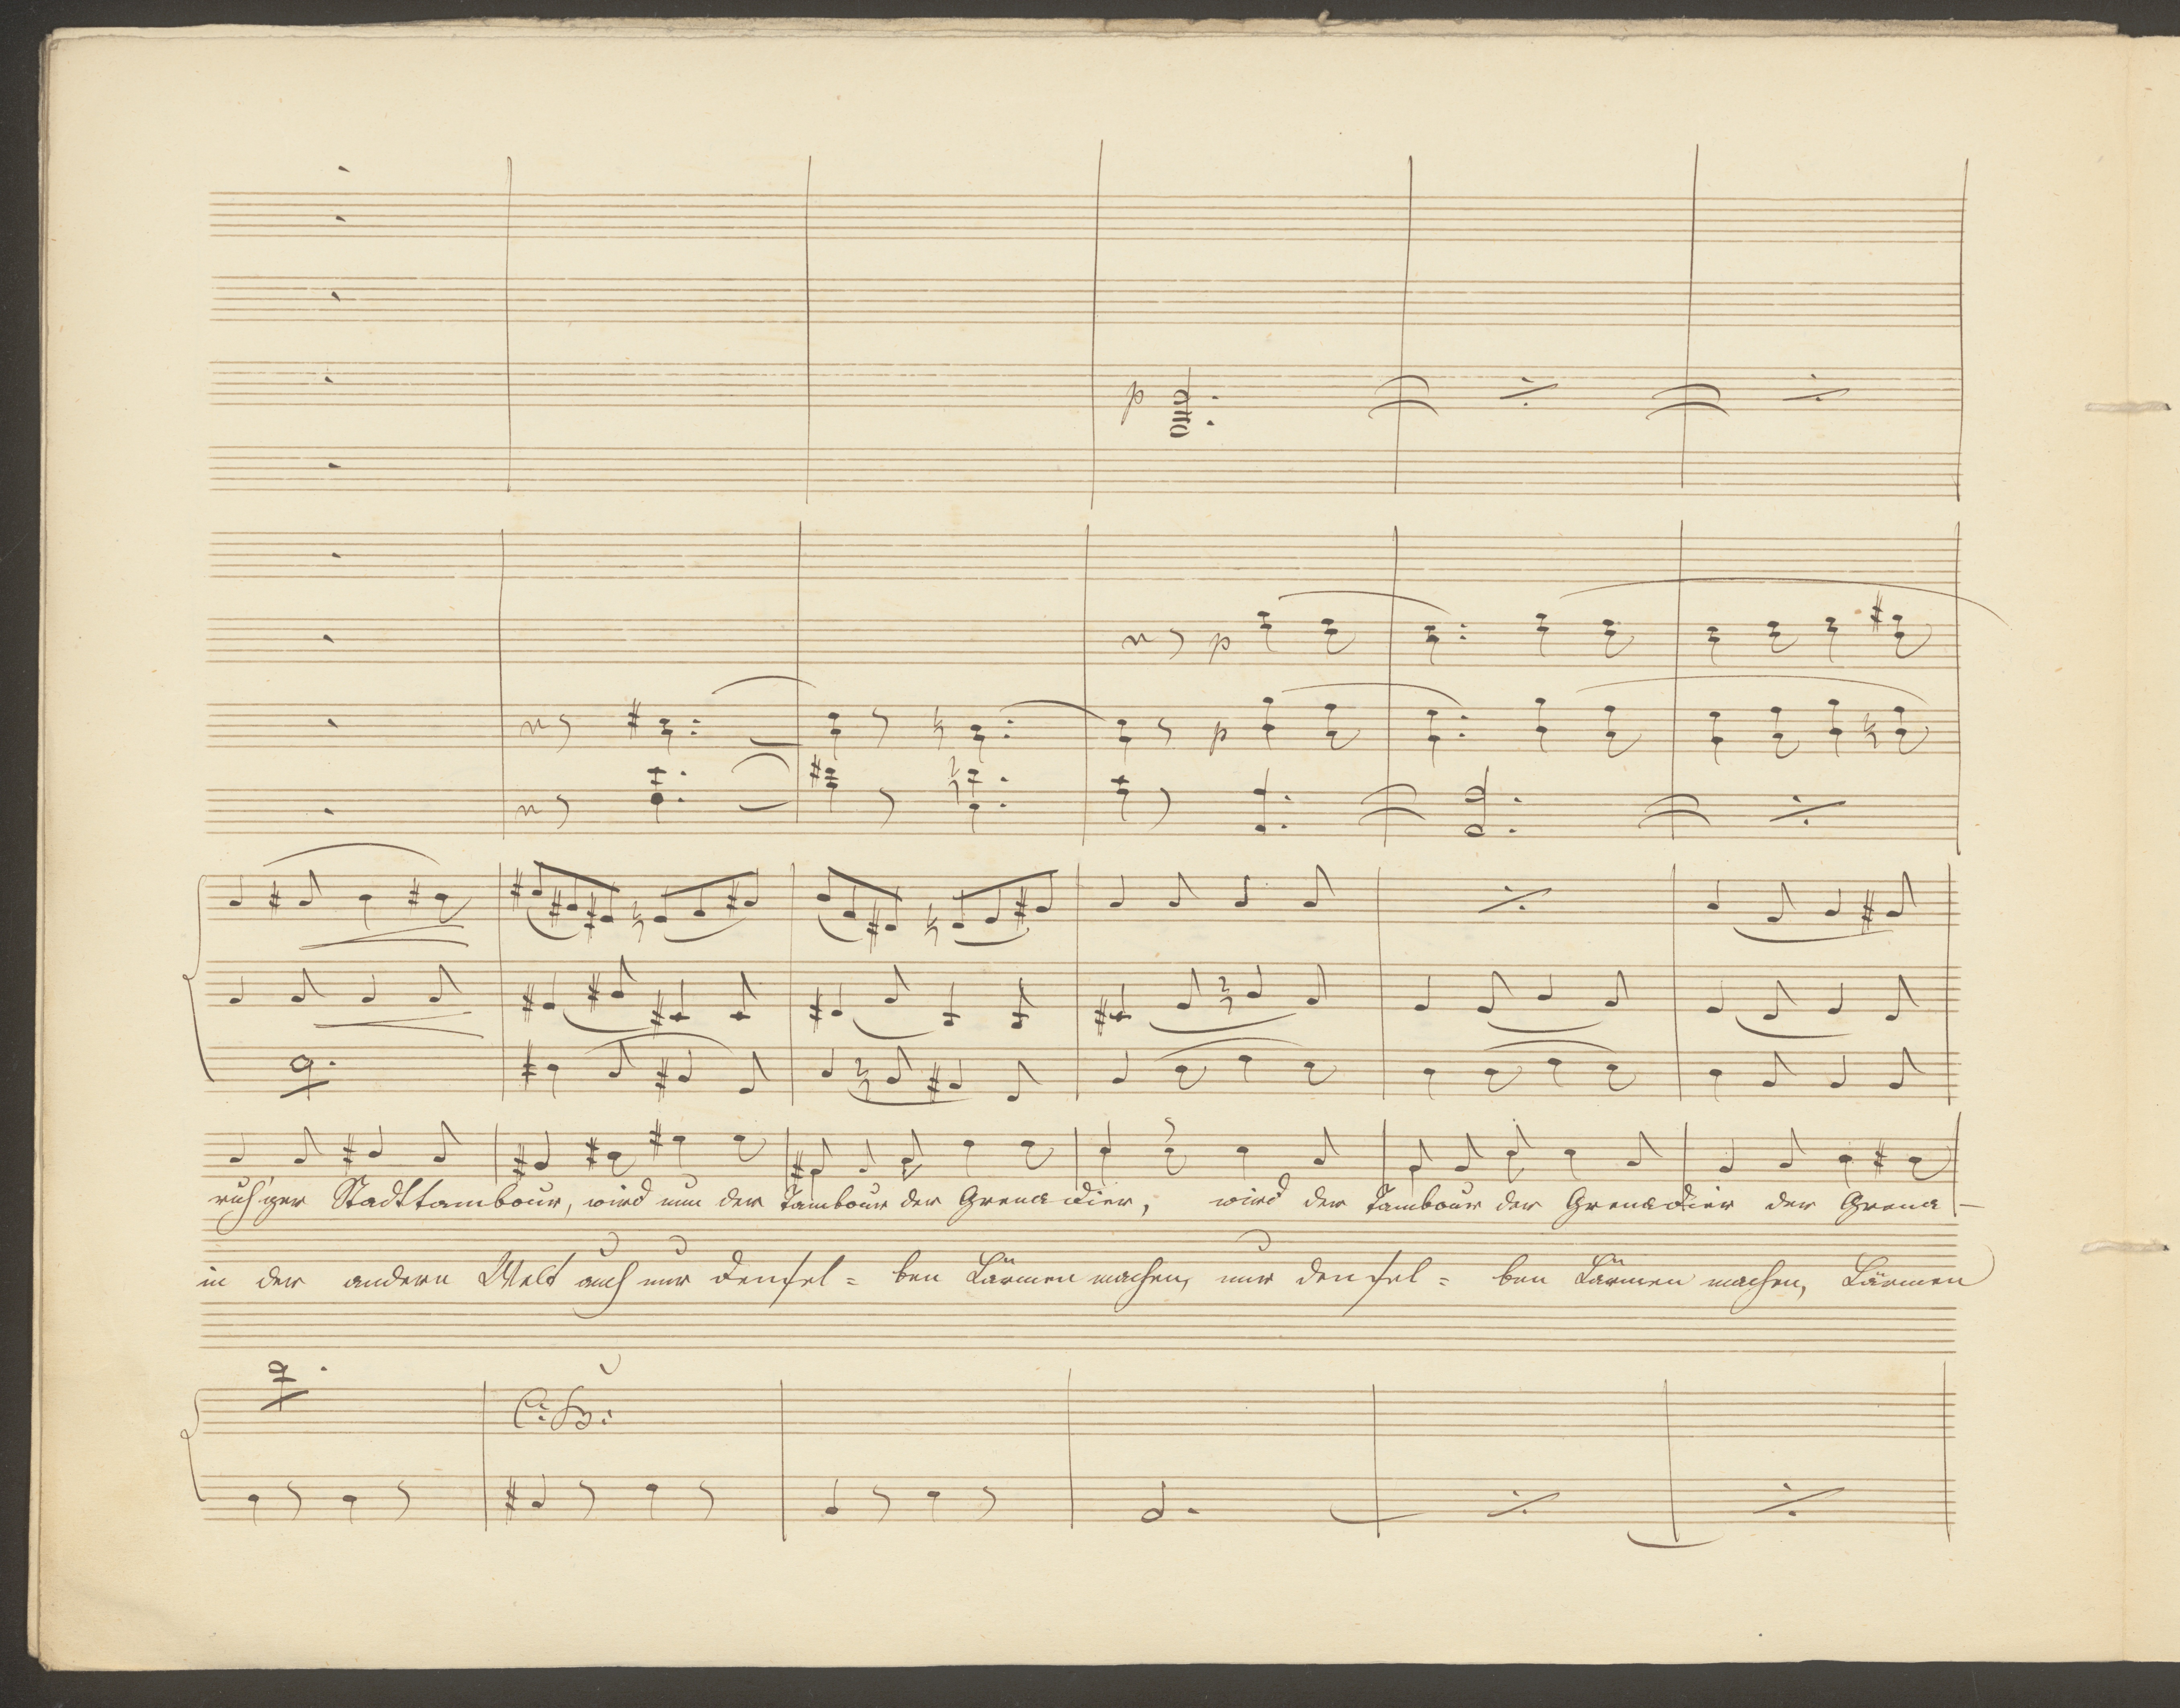 p
p
p
ruh'ger Stadttambour, wird nun der Tambour der Grenadier, wird der Tambour der Grenadier der Grena-
in der andern Welt auch nur densel= ben Lärmen machen, nur densel= ben Lärmen machen, Lärmen
C. B.